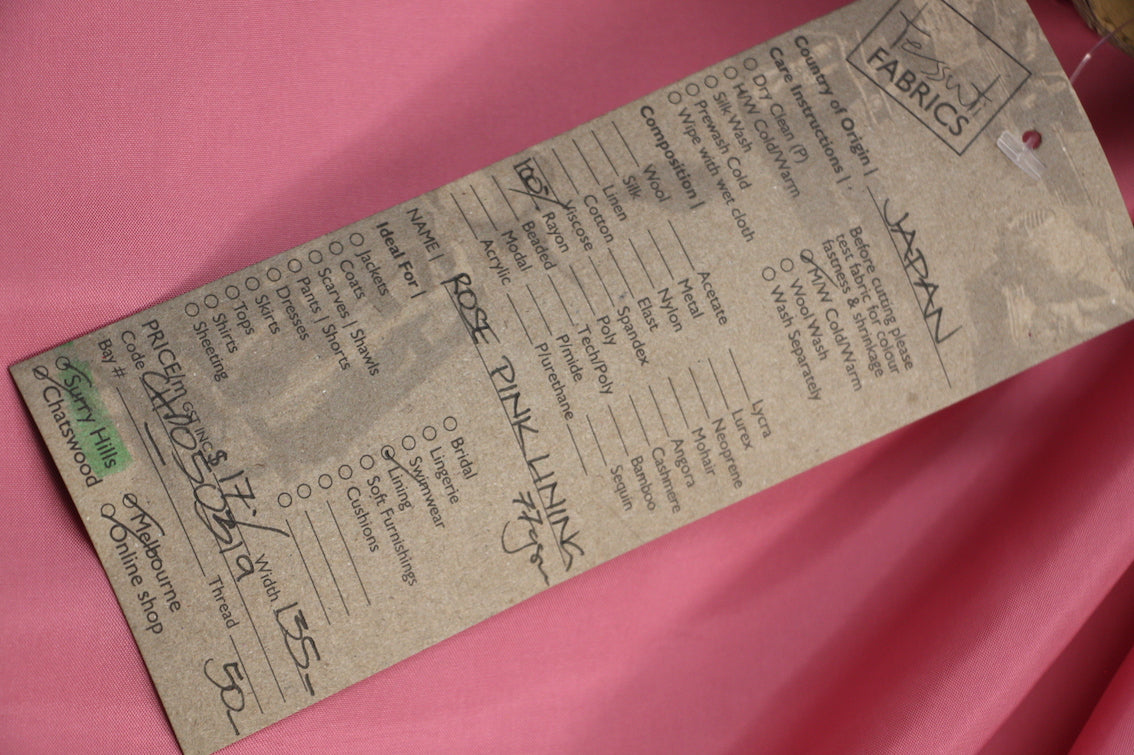 Tessuti
FABRICS
Country of Origin | JAPAN
Care Instructions |
Dry Clean (P)
H/W Cold/Warm
Silk Wash
Prewash Cold
Wipe with wet cloth
Before cutting please
test fabric for colour
fastness & shrinkage
M/W Cold/Warm
Wool Wash
Wash Separately
Composition |
Wool
Silk
Linen
Cotton
Viscose
100% Rayon
Beaded
Modal
Acrylic
Acetate
Metal
Nylon
Elast
Spandex
Poly
Tech/Poly
P/mide
P/urethane
Lycra
Lurex
Neoprene
Mohair
Angora
Cashmere
Bamboo
Sequin
NAME | ROSE PINK LINING
77gsm
Ideal For |
Jackets
Coats
Scarves | Shawls
Pants | Shorts
Dresses
Skirts
Tops
Shirts
Sheeting
Bridal
Lingerie
Swimwear
Lining
Soft Furnishings
Cushions
PRICE/m GST INC $ 17.- Width 135-
Code
Thread 50-
Bay #
Surry Hills
Chatswood
Melbourne
Online shop